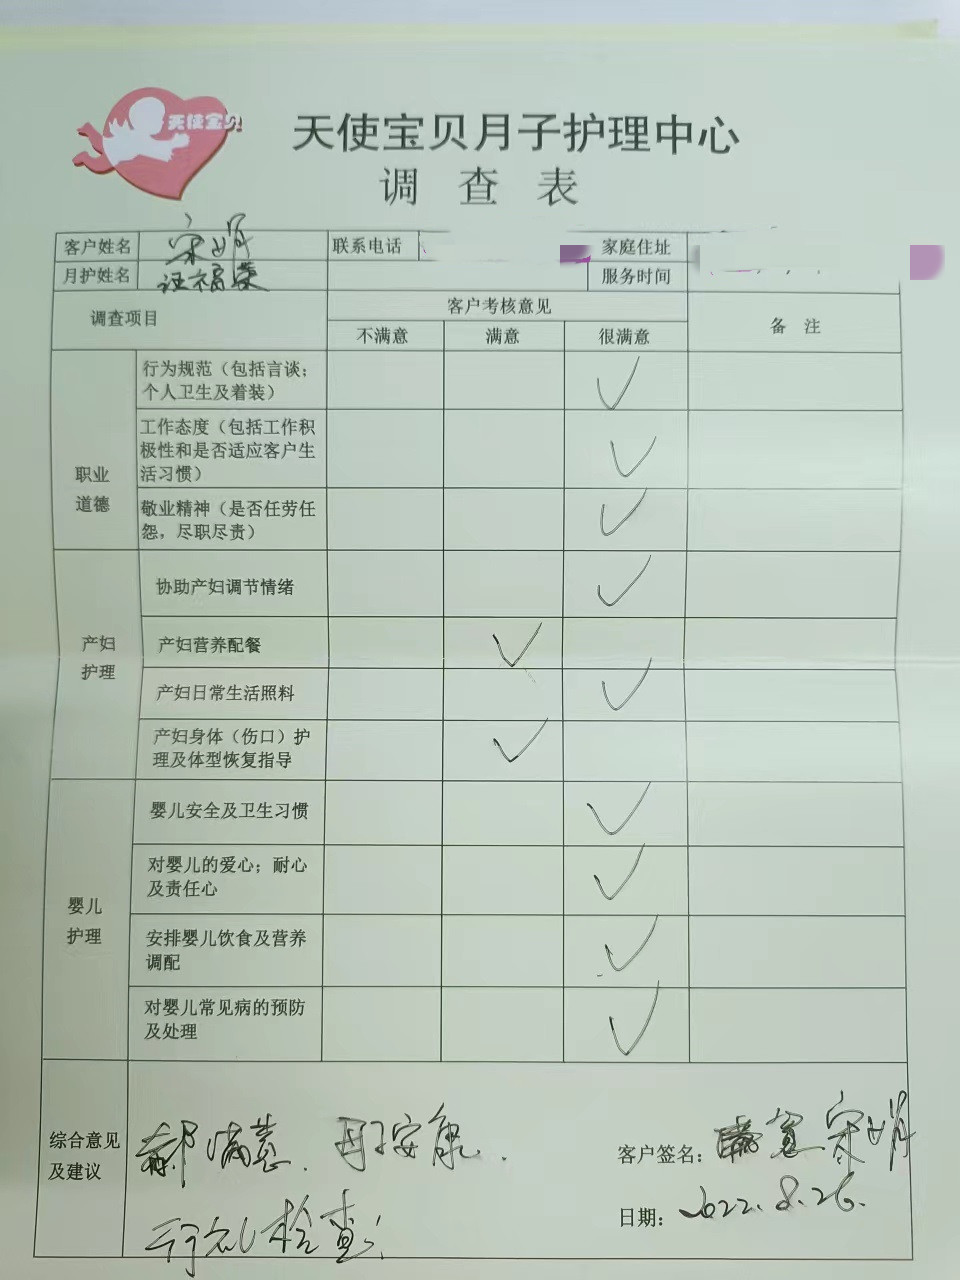 天使宝贝
天使宝贝月子护理中心
调 查 表
客户姓名 宋娟 联系电话 家庭住址
月护姓名 汪福荣 服务时间
调查项目 客户考核意见 备 注
不满意 满意 很满意
职业道德
行为规范（包括言谈；
个人卫生及着装） ✓
工作态度（包括工作积
极性和是否适应客户生
活习惯） ✓
敬业精神（是否任劳任
怨，尽职尽责） ✓
产妇护理
协助产妇调节情绪 ✓
产妇营养配餐 ✓
产妇日常生活照料 ✓
产妇身体（伤口）护
理及体型恢复指导 ✓
婴儿护理
婴儿安全及卫生习惯 ✓
对婴儿的爱心；耐心
及责任心 ✓
安排婴儿饮食及营养
调配 ✓
对婴儿常见病的预防
及处理 ✓
综合意见
及建议
满意.
行礼检查
客户签名： 宋娟
日期： 2022.8.26.